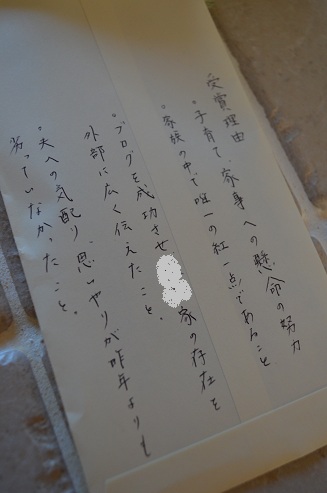 受賞理由
・子育て、家事への懸命の努力
・家族の中で唯一の紅一点であること
・ブログを成功させ 家の存在を
外部に広く伝えたこと、
・夫への気配り、思いヤリが昨年よりも
劣っていなかったこと。